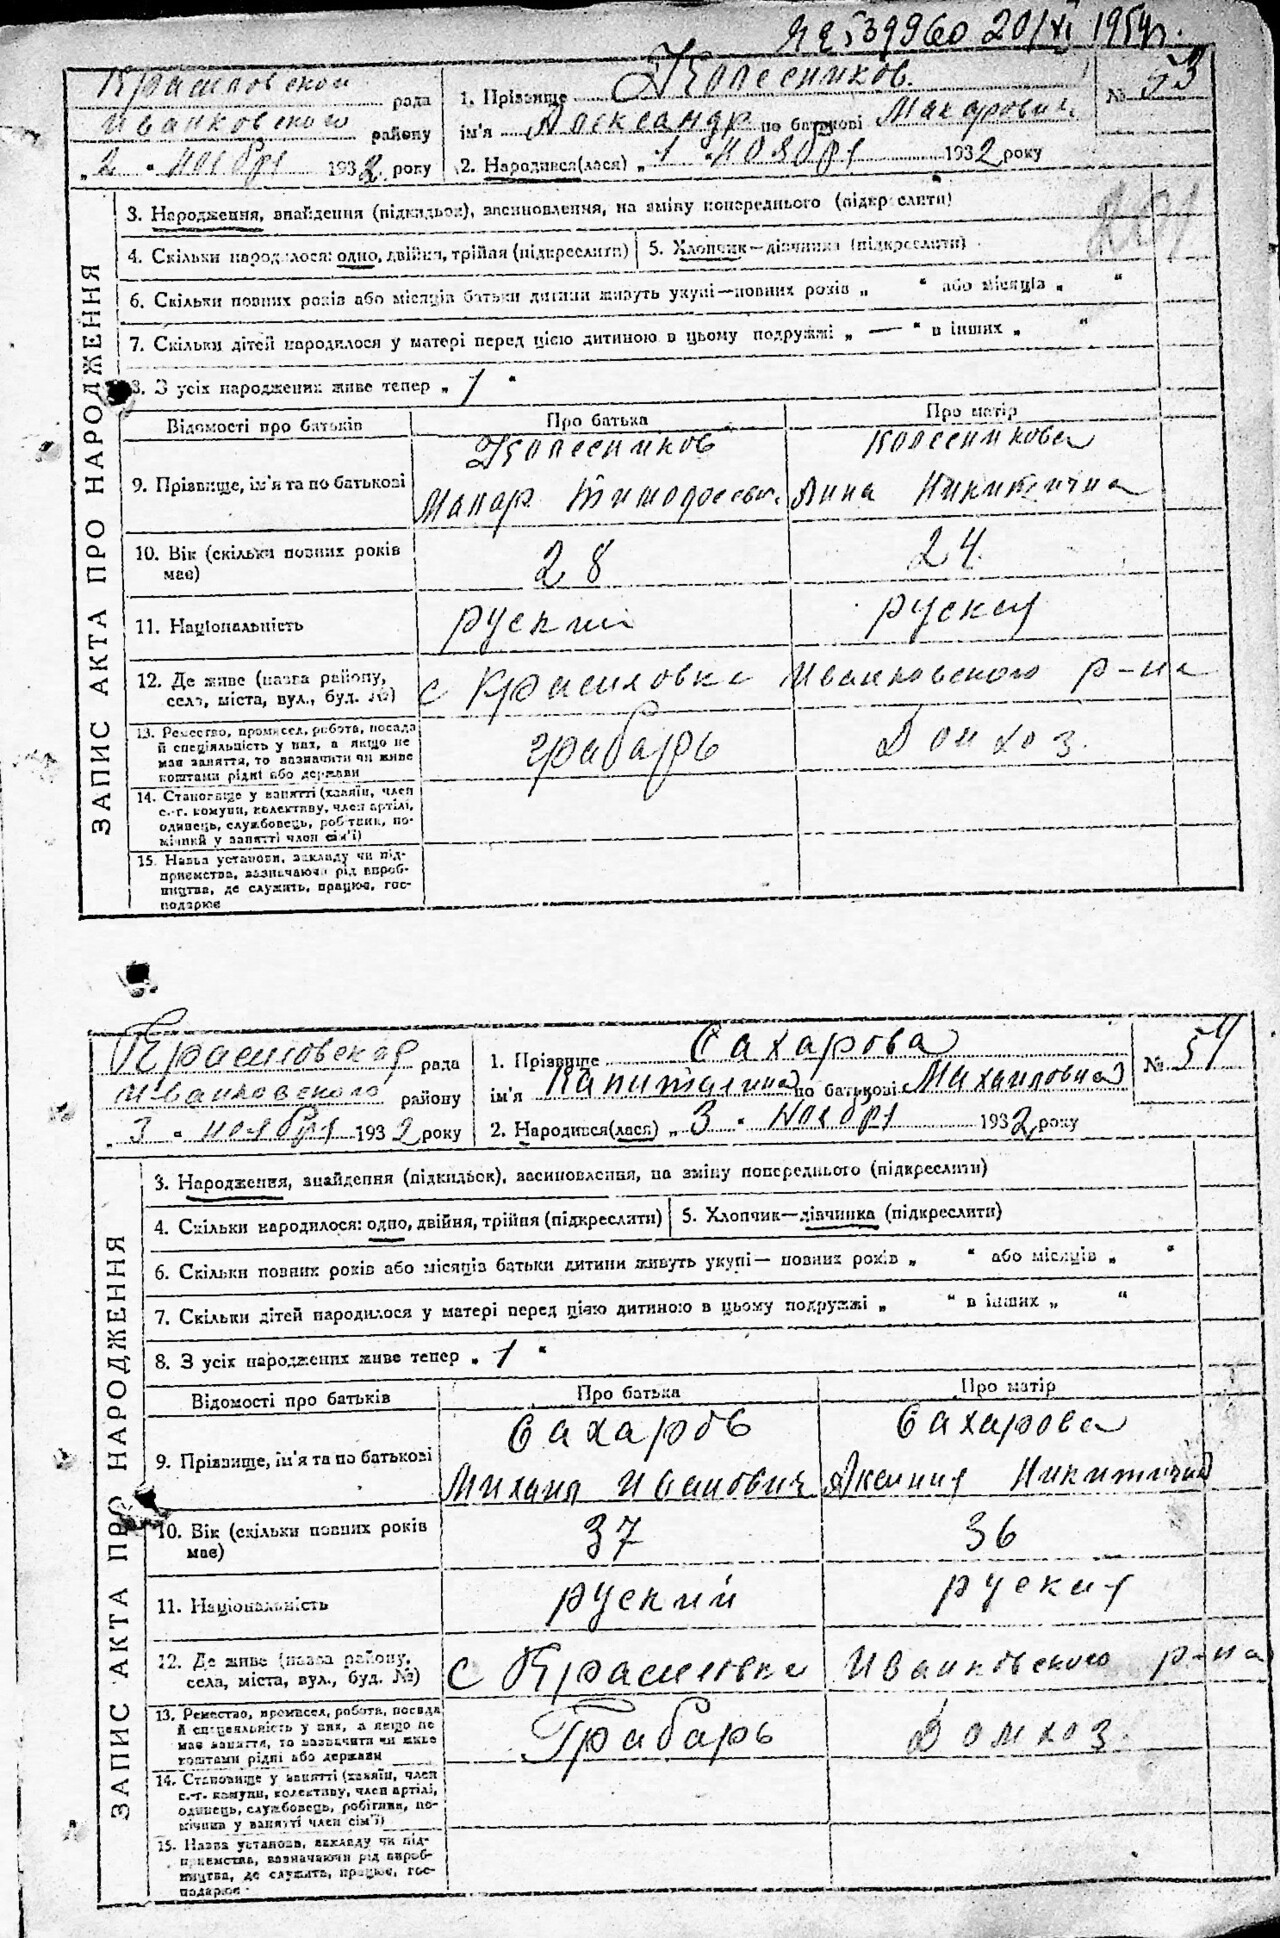 539960 20/XI 1954г.
Красиловской рада
Иванковского району
„2 " ноября 1932 року
1. Прізвище Колесников
ім'я Александр по батькові Макарович
2. Народився(лася) „1 " ноября 1932 року
№ 53
ЗАПИС АКТА ПРО НАРОДЖЕННЯ
3. Народження, знайдення (підкидьок), засиновлення, на зміну попереднього (підкреслити)
4. Скільки народилося: одно, двійня, трійня (підкреслити) 5. Хлопчик—дівчинка (підкреслити)
6. Скільки повних років або місяців батьки дитини живуть укупі—повних років „ " або місяців „ "
7. Скільки дітей народилося у матері перед цією дитиною в цьому подружжі „ — " в інших „ "
8. З усіх народжених живе тепер „ 1 "
Відомості про батьків Про батька Про матір
9. Прізвище, ім'я та по батькові
Колесников Колесникова
Макар Тимофеевич Анна Никитична
10. Вік (скільки повних років має) 28 24
11. Національність руский руская
12. Де живе (назва району, село, міста, вул., буд. №) с Красиловка Иванковского р-на
13. Ремество, промисел, робота, посада
й спеціяльність у них, а якщо не
має заняття, то зазначити чи живе
коштами рідні або держави
грабарь Домхоз.
14. Становище у занятті (хазяїн, член
с.-г. комуни, колективу, член артілі,
одинець, службовець, робітник, по-
мічний у занятті член сім'ї)
15. Назва установи, закладу чи під-
приємства, зазначаючи рід вироб-
ництва, де служить, працює, гос-
подарює
Красиловская рада
Иванковского району
„3 " ноября 1932 року
1. Прізвище Сахарова
ім'я Капиталина по батькові Михайловна
2. Народився(лася) „3 " ноября 1932 року
№ 54
ЗАПИС АКТА ПРО НАРОДЖЕННЯ
3. Народження, знайдення (підкидьок), засиновлення, на зміну попереднього (підкреслити)
4. Скільки народилося: одно, двійня, трійня (підкреслити) 5. Хлопчик—дівчинка (підкреслити)
6. Скільки повних років або місяців батьки дитини живуть укупі— повних років „ " або місяців „ "
7. Скільки дітей народилося у матері перед цією дитиною в цьому подружжі „ " в інших „ "
8. З усіх народжених живе тепер „ 1 "
Відомості про батьків Про батька Про матір
9. Прізвище, ім'я та по батькові
Сахаров Сахарова
Михаил Иванович Аксиния Никитична
10. Вік (скільки повних років має) 37 36
11. Національність руский руская
12. Де живе (назва району, села, міста, вул., буд. №) с Красиловка Иванковского р-на
13. Ремество, промисел, робота, посада
й спеціяльність у них, а якщо не
має заняття, то зазначити чи живе
коштами рідні або держави
Грабарь Домхоз.
14. Становище у занятті (хазяїн, член
с.-г. комуни, колективу, член артілі,
одинець, службовець, робітник, по-
мічний у занятті член сім'ї)
15. Назва установи, закладу чи під-
приємства, зазначаючи рід вироб-
ництва, де служить, працює, гос-
подарює